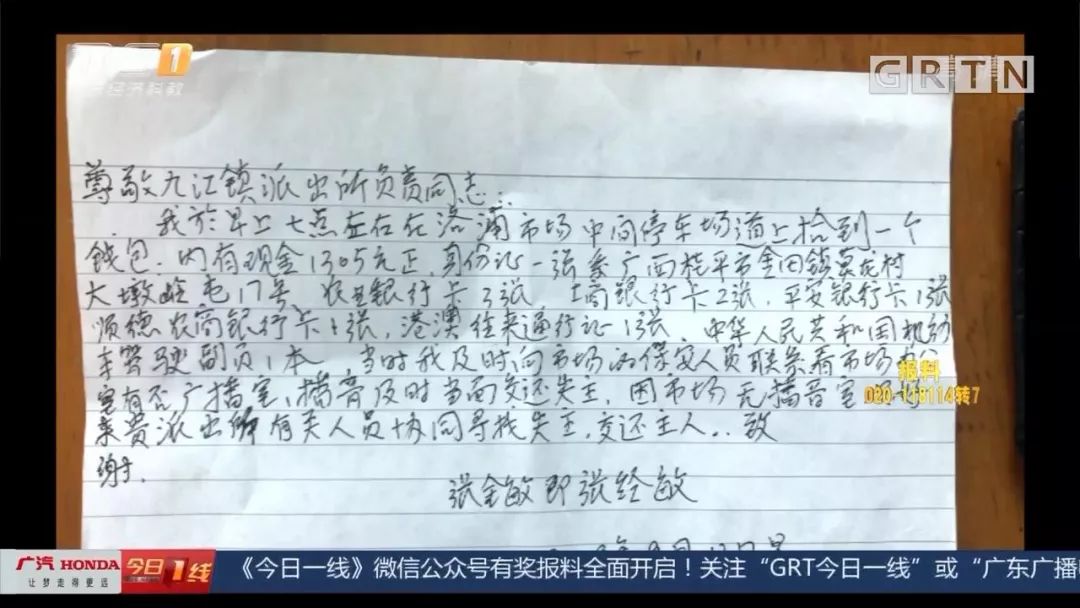 1
经济科教
GRTN
尊敬九江镇派出所负责同志:
我於早上七点左右在洛浦市场中间停车场道上拾到一个
钱包.内有现金1305元正.身份证一张系广西桂平市金田镇泉龙村
大墩岭屯17号、农业银行卡3张 工商银行卡2张.平安银行卡1张
顺德农商银行卡1张,港澳往来通行证1张.中华人民共和国机动
车驾驶副页1本 当时我及时向市场的保安人员联系看市场办公
室有否广播室,播音及时当面交还失主,因市场无播音室
来贵派出所有关人员协同寻找失主.交还主人..致
谢.
张全敏即张经敏
报料
020-118114转7
广汽 HONDA
让梦走得更远
今日1线
《今日一线》微信公众号有奖报料全面开启！关注“GRT今日一线”或“广东广播